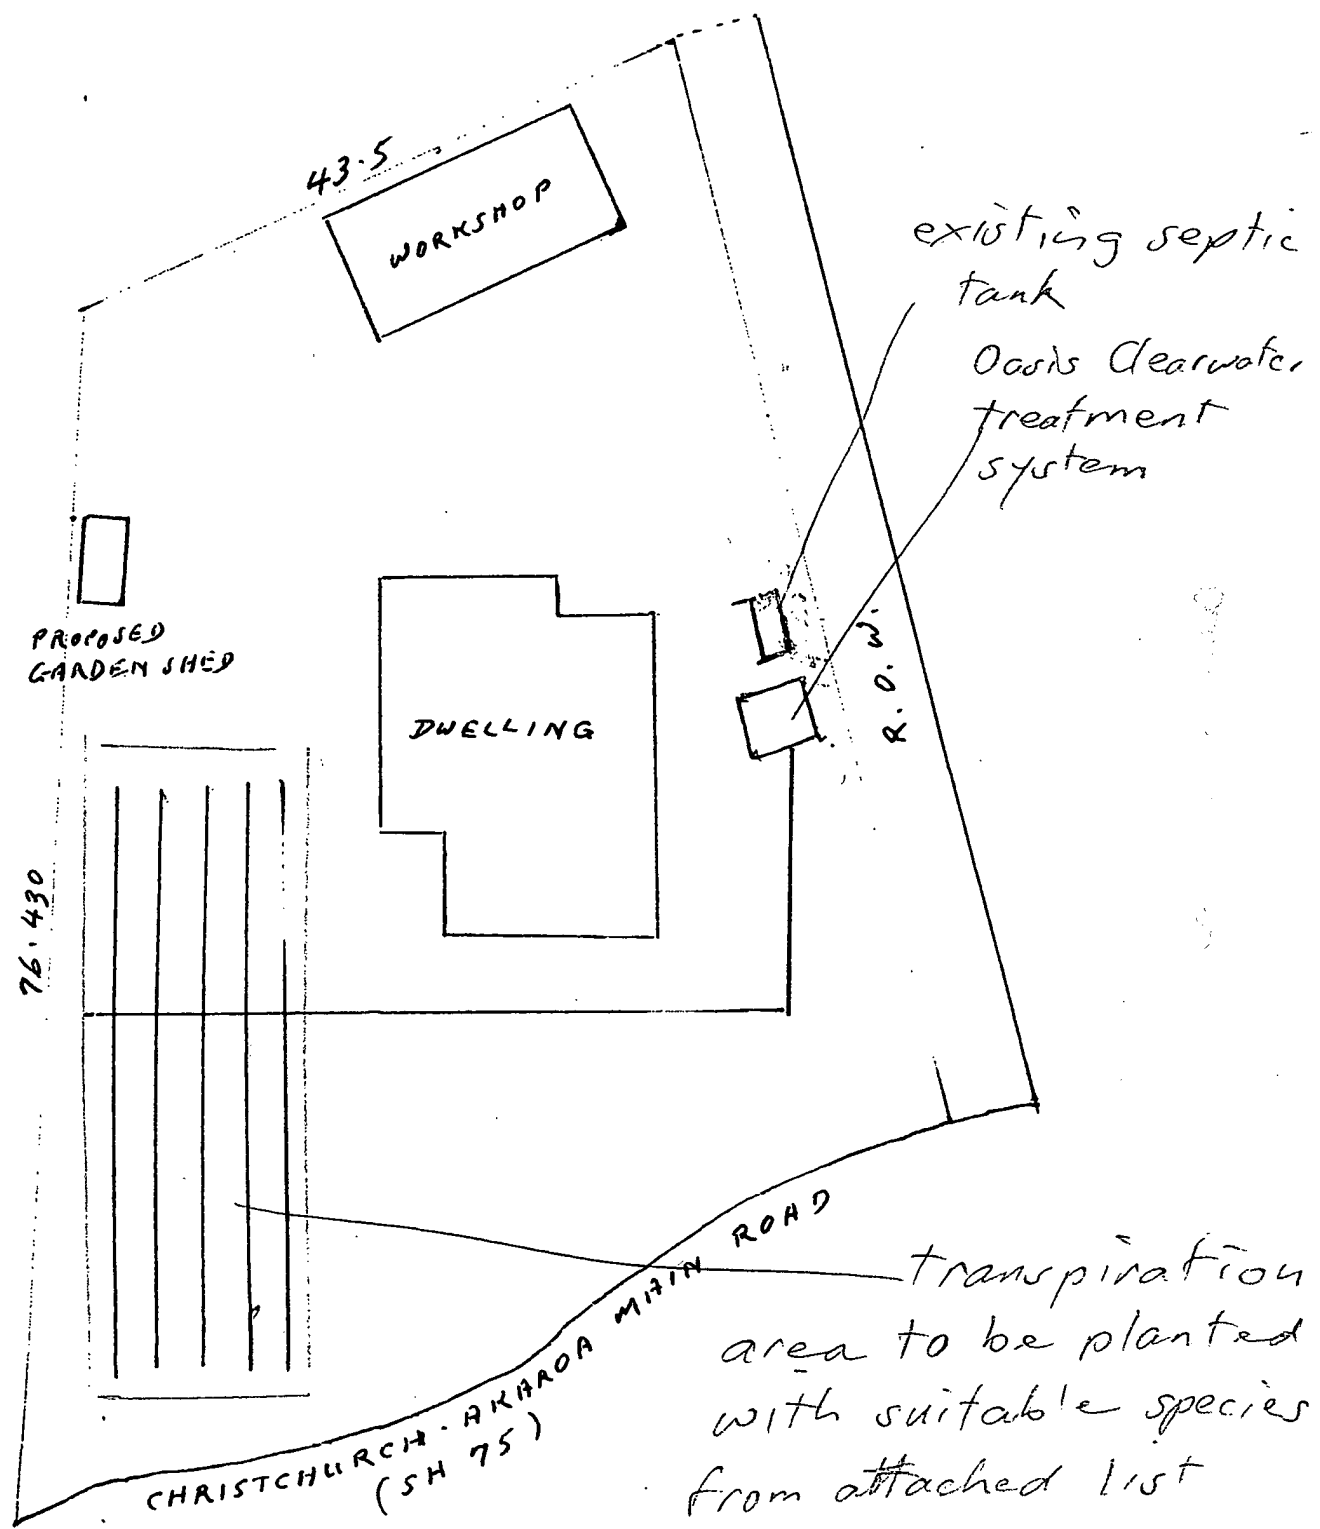 43.5
WORKSHOP
existing septic
tank
Oasis Clearwater
treatment
system
PROPOSED
GARDEN SHED
R.O.W.
DWELLING
76.430
CHRISTCHURCH-AKAROA MAIN ROAD
(SH 75)
transpiration
area to be planted
with suitable species
from attached list